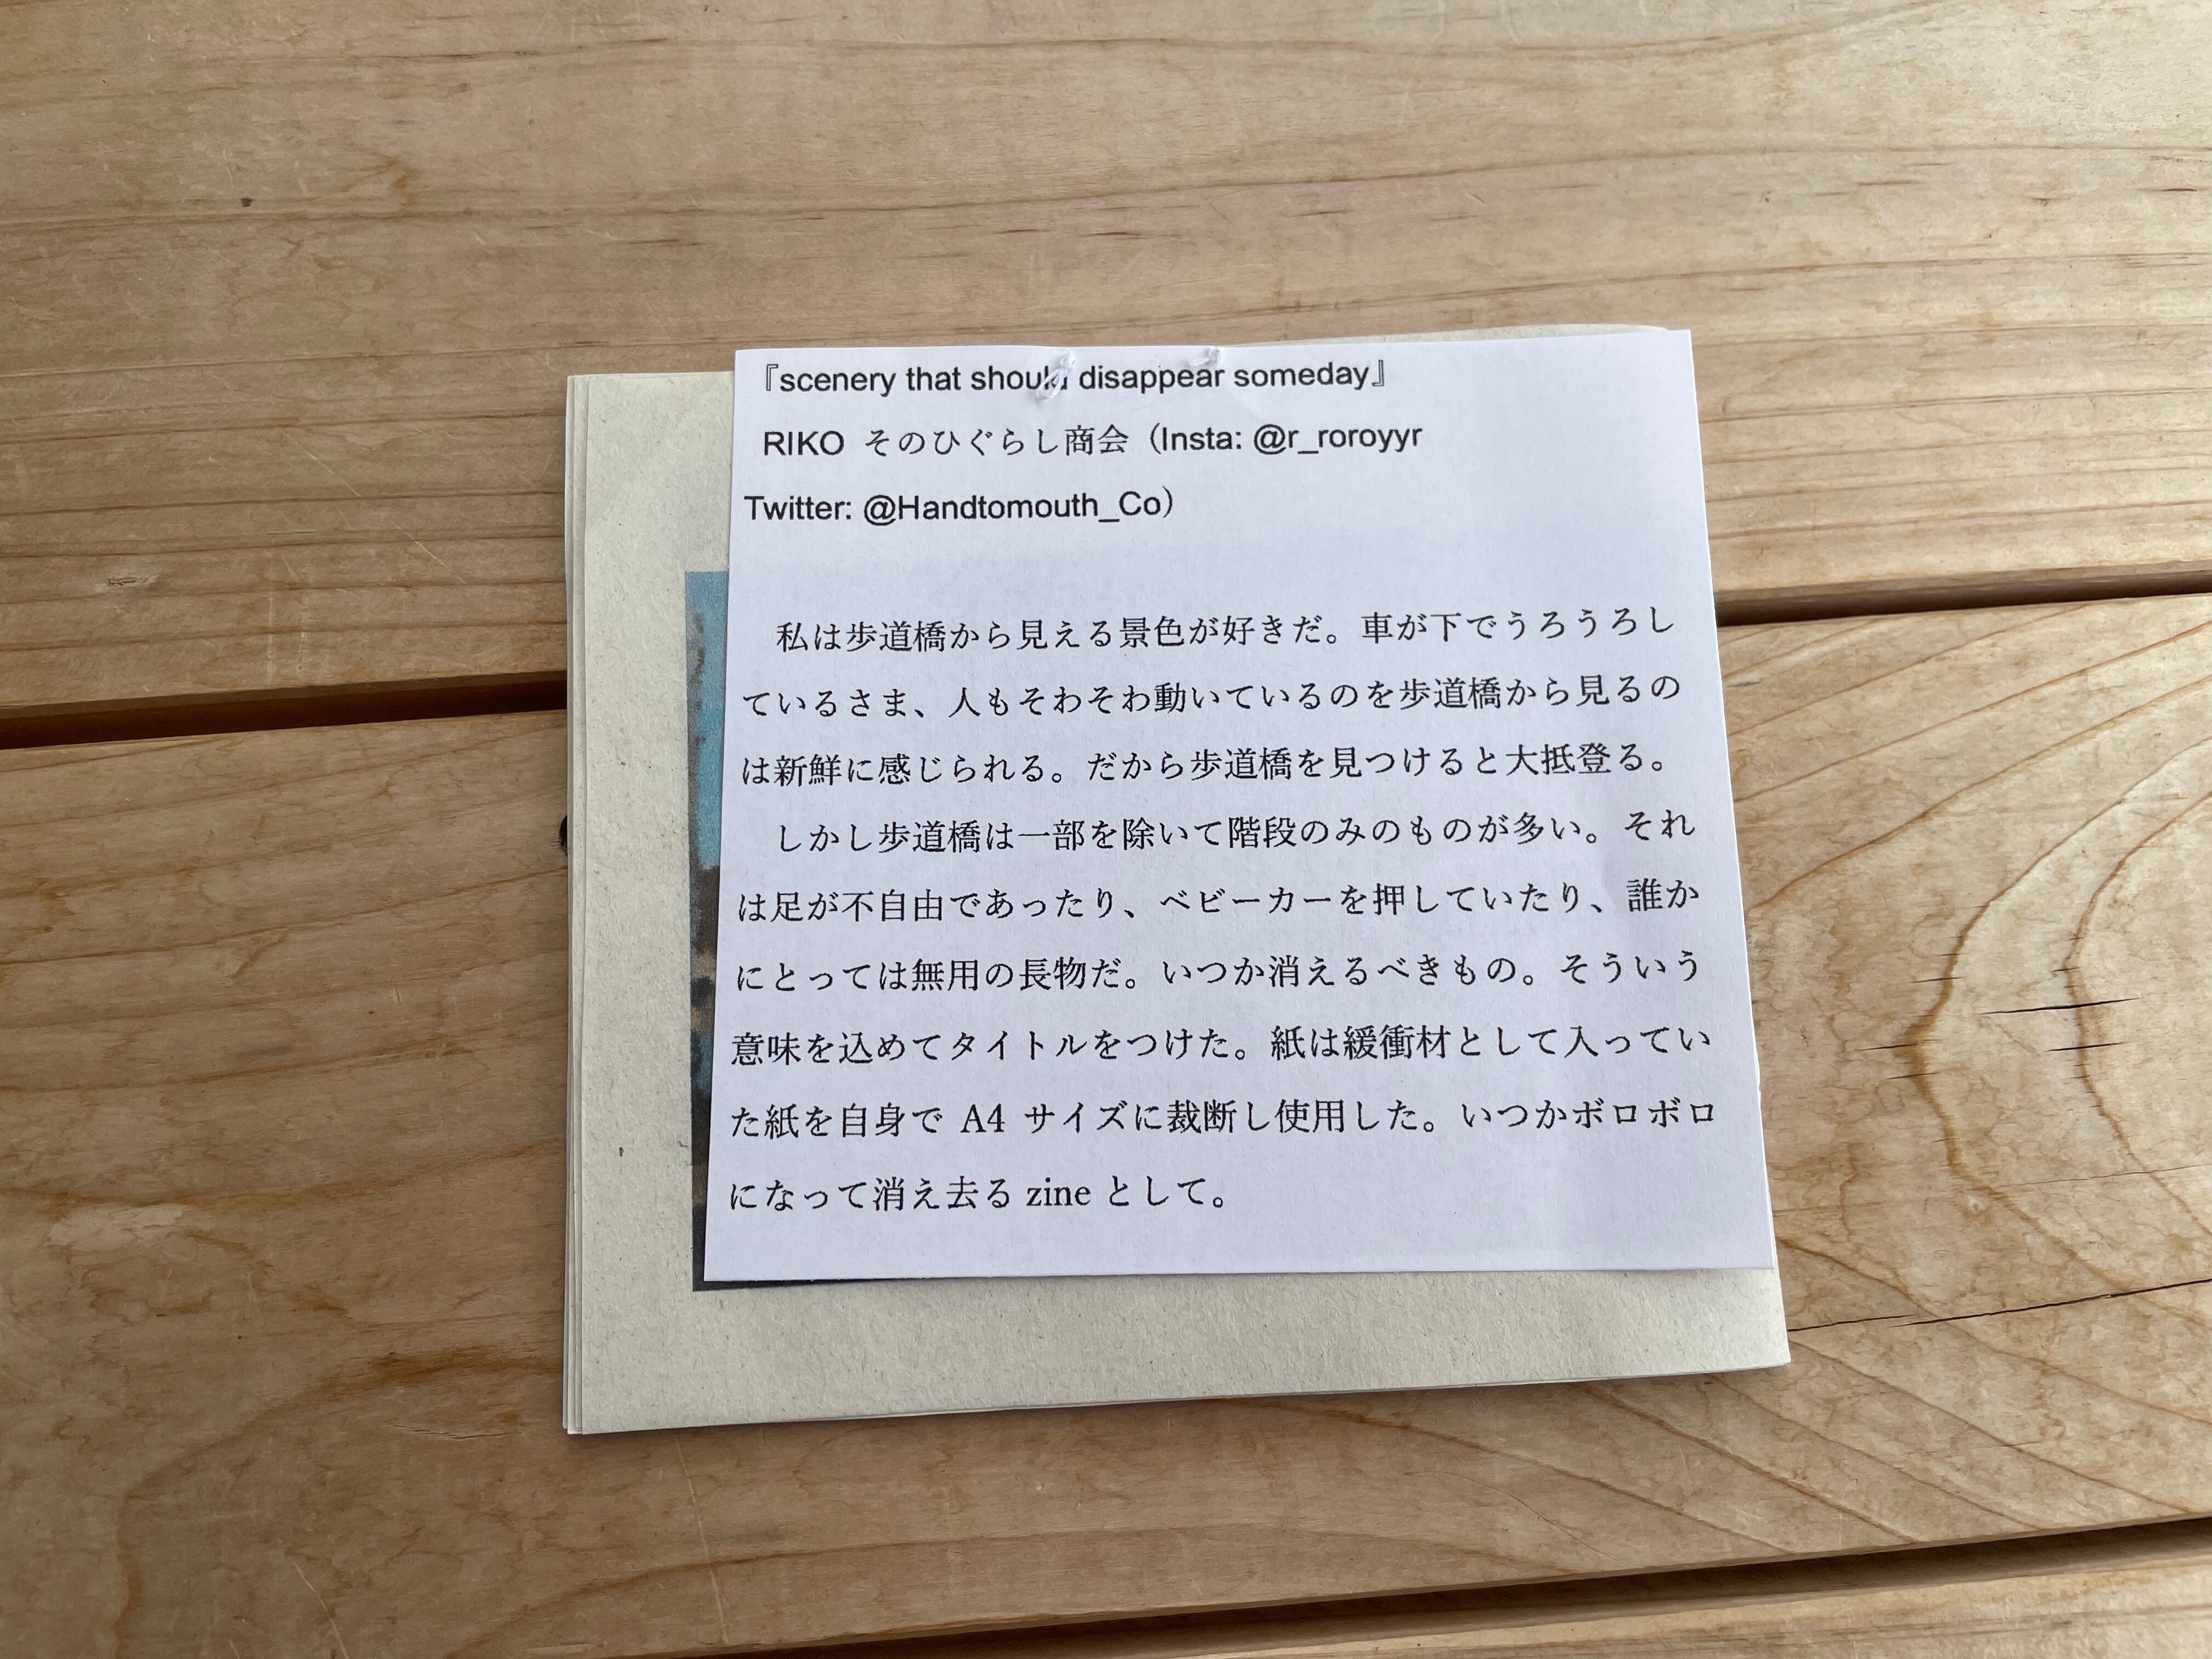 『scenery that should disappear someday』
RIKO そのひぐらし商会（Insta: @r_roroyyr
Twitter: @Handtomouth_Co）
私は歩道橋から見える景色が好きだ。車が下でうろうろし
ているさま、人もそわそわ動いているのを歩道橋から見るの
は新鮮に感じられる。だから歩道橋を見つけると大抵登る。
しかし歩道橋は一部を除いて階段のみのものが多い。それ
は足が不自由であったり、ベビーカーを押していたり、誰か
にとっては無用の長物だ。いつか消えるべきもの。そういう
意味を込めてタイトルをつけた。紙は緩衝材として入ってい
た紙を自身で A4 サイズに裁断し使用した。いつかボロボロ
になって消え去る zine として。